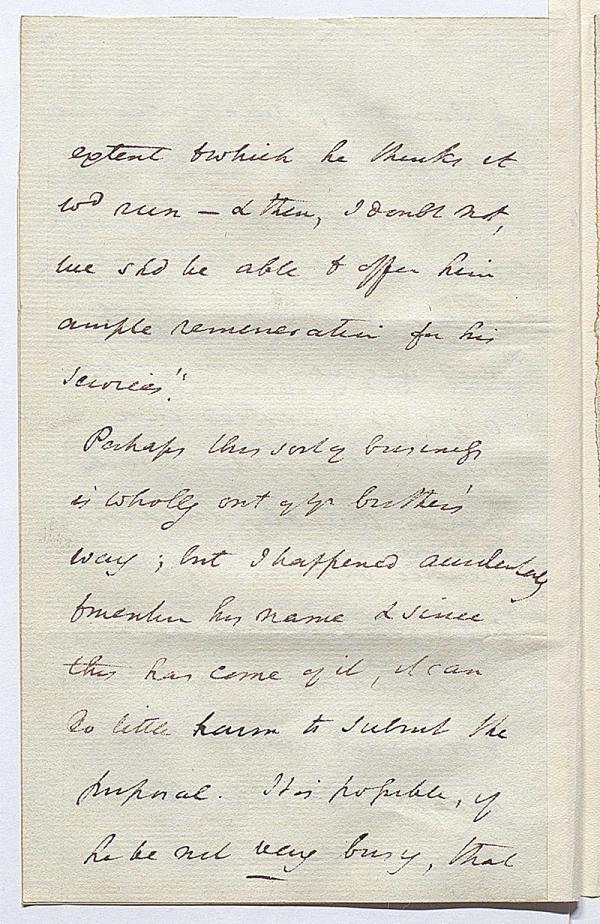 extent to which he thinks it
wd run — & then, I doubt not,
we shd be able to offer him
ample remuneration for his
services".
Perhaps this sort of business
is wholly out of yr brother's
way; but I happened accidentally
to mention his name & since
this has come of it, it can
do little harm to submit the
proposal. It is possible, if
he be not very busy, that